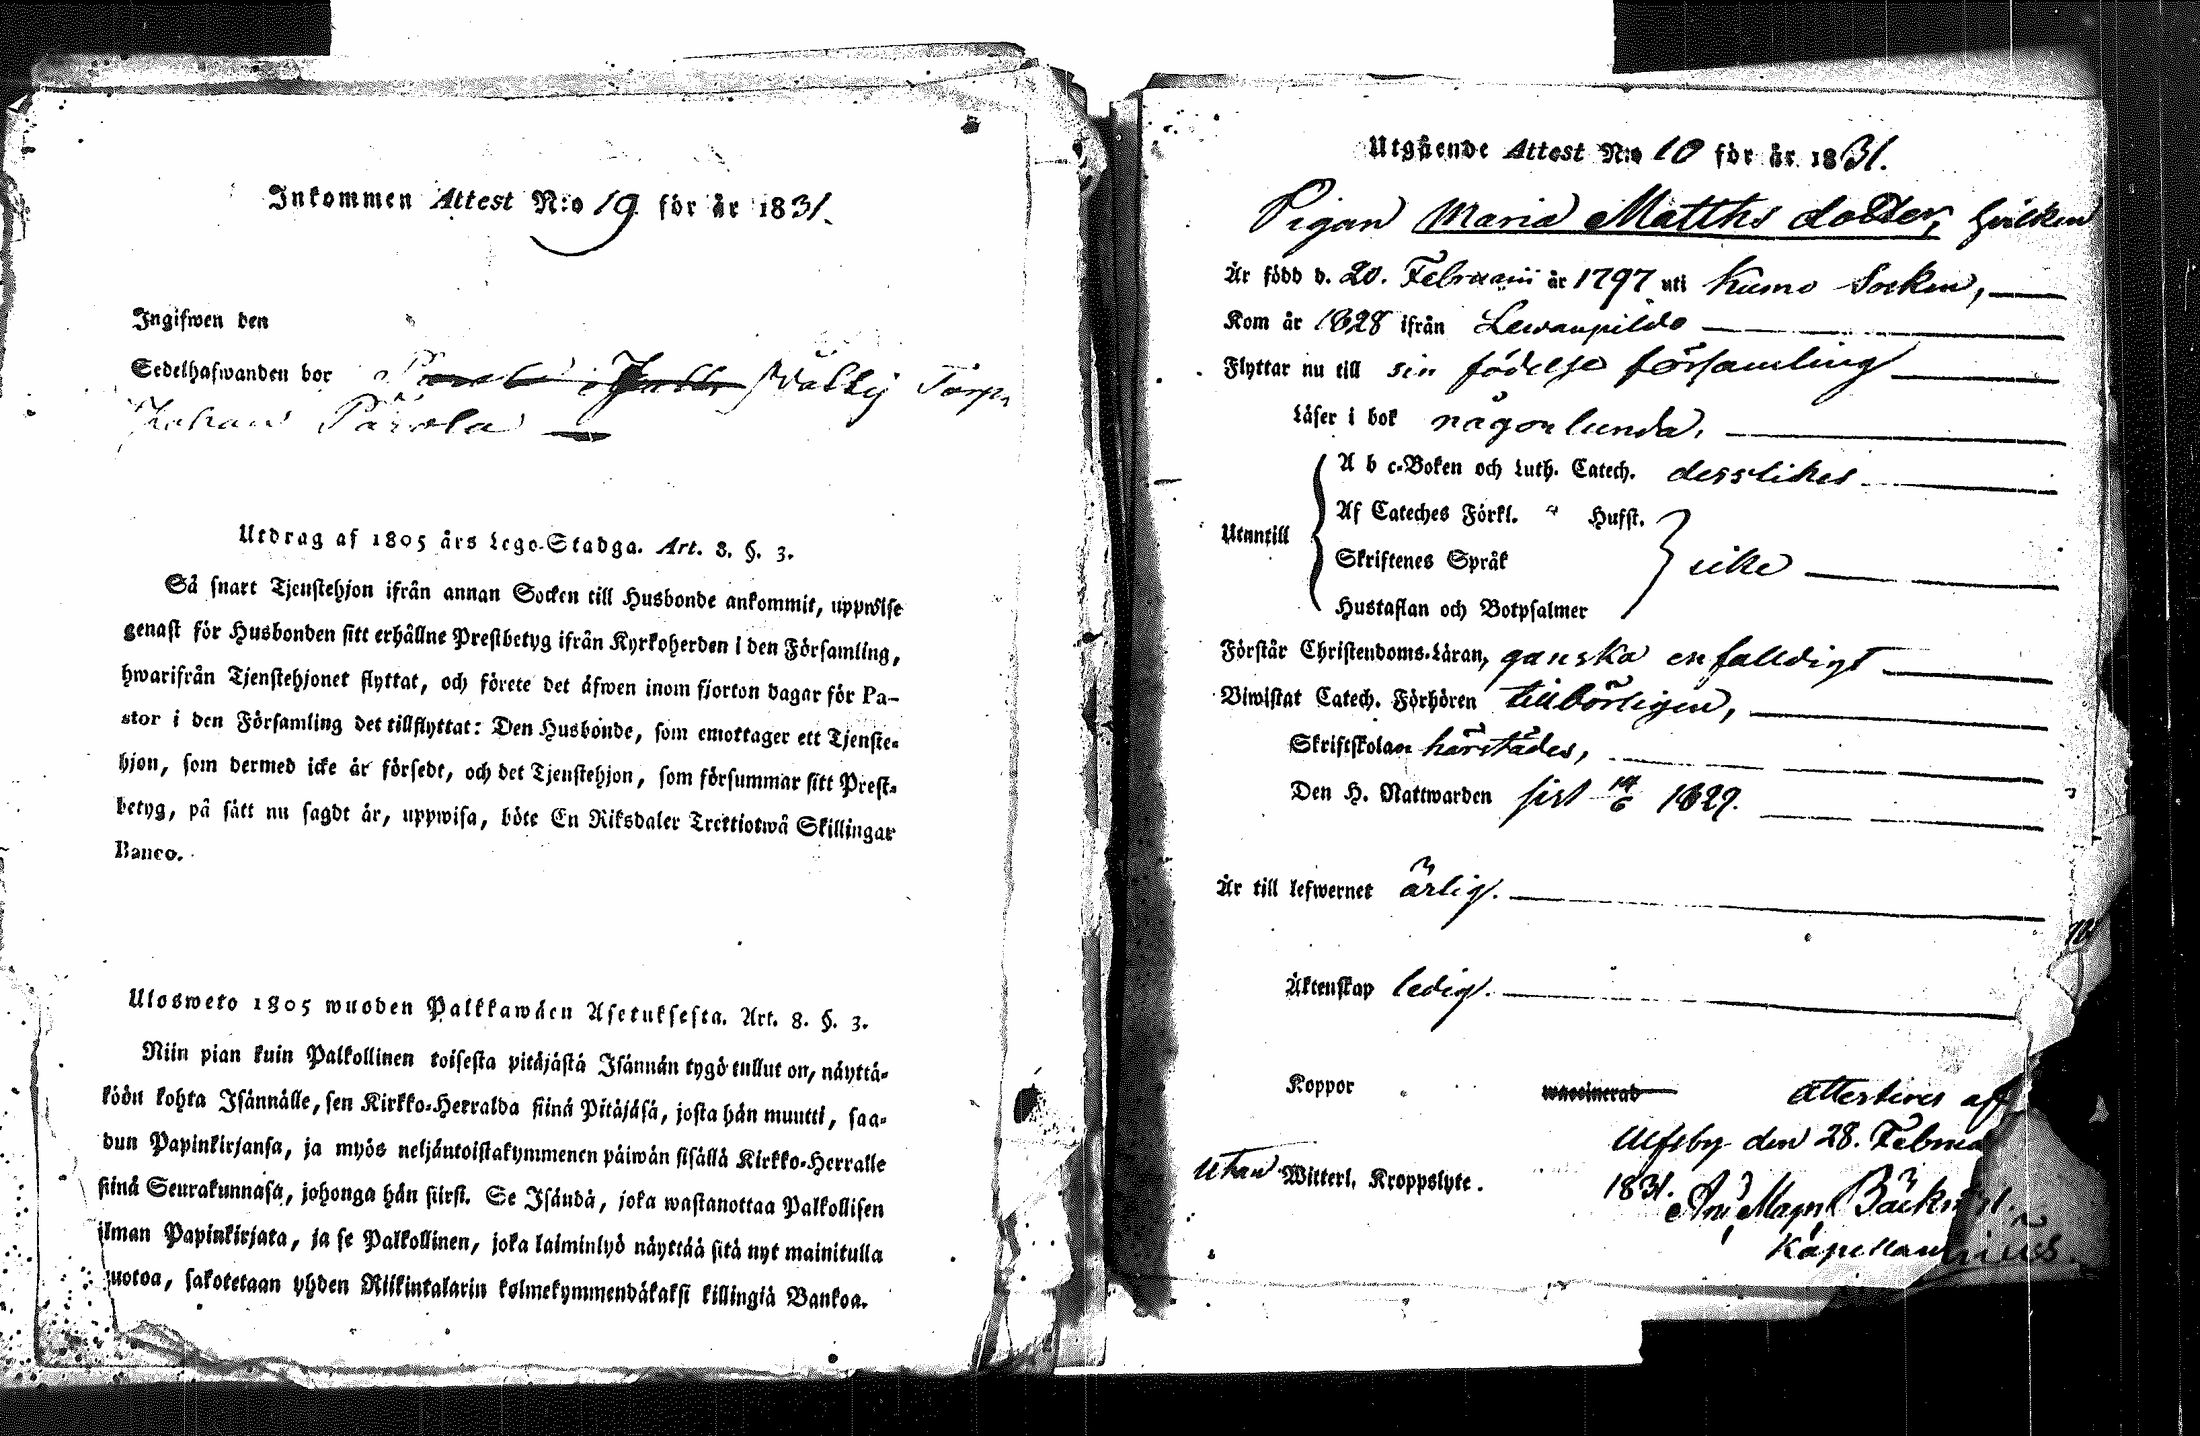 Inkommen Attest N:o 19 för år 1831.
Ingifwen den
Sedelhafwanden bor Wälby Torp
Johan Pärola
Utdrag af 1805 års Lego-Stadga. Art. 8. §. 3.
Så snart Tjenstehjon ifrån annan Socken till Husbonde ankommit, uppwise
genast för Husbonden sitt erhållne Prestbetyg ifrån Kyrkoherden i den Församling,
hwarifrån Tjenstehjonet flyttat, och förete det äfwen inom fjorton dagar för Pa-
stor i den Församling det tillflyttat: Den Husbonde, som emottager ett Tjenste-
hjon, som dermed icke är försedt, och det Tjenstehjon, som försummar sitt Prest-
betyg, på sätt nu sagdt är, uppwisa, böte En Riksdaler Trettiotwå Skillingar
Banco.
Ulosweto 1805 wuoden Palkkawäen Asetuksesta. Art. 8. §. 3.
Niin pian kuin Palkollinen toisesta pitäjästä Isännän tygö tullut on, näyttä-
köön kohta Isännälle, sen Kirkko-Herralda siinä Pitäjäsä, josta hän muutti, saa-
dun Papinkirjansa, ja myös neljäntoistakymmenen päiwän sisällä Kirkko-Herralle
siinä Seurakunnasa, johonga hän siirst. Se Isändä, joka wastanottaa Palkollisen
ilman Papinkirjata, ja se Palkollinen, joka laiminlyö näyttää sitä nyt mainitulla
uotoa, sakotetaan yhden Riikintalarin kolmekymmendäkaksi killingiä Bankoa.
Utgående Attest N:o 10 för år 1831.
Pigan Maria Matths dotter, hvilken
Är född d. 20. Februarii år 1797 uti Kumo Socken,
Kom år 1828 ifrån Lewanpeldo
Flyttar nu till sin födelse församling
Läser i bok någorlunda,
A b c-Boken och Luth. Catech. desslikes
Af Cateches Förkl. " Husst.
Utantill
Skriftenes Språk icke
Hustaflan och Botpsalmer
Förstår Christendoms-Läran, ganska enfalldigt
Biwistat Catech. Förhören tillbörligen,
Skriftskolan härstädes,
Den H. Nattwarden sist 14/6 1829.
Är till lefwernet ärlig.
Äktenskap ledig.
Koppor waccinerad Attesteres af
Ulfsby den 28. Februa
Utan Witterl. Kroppslyte. 1831.
Magn Bäckm
Kapellan